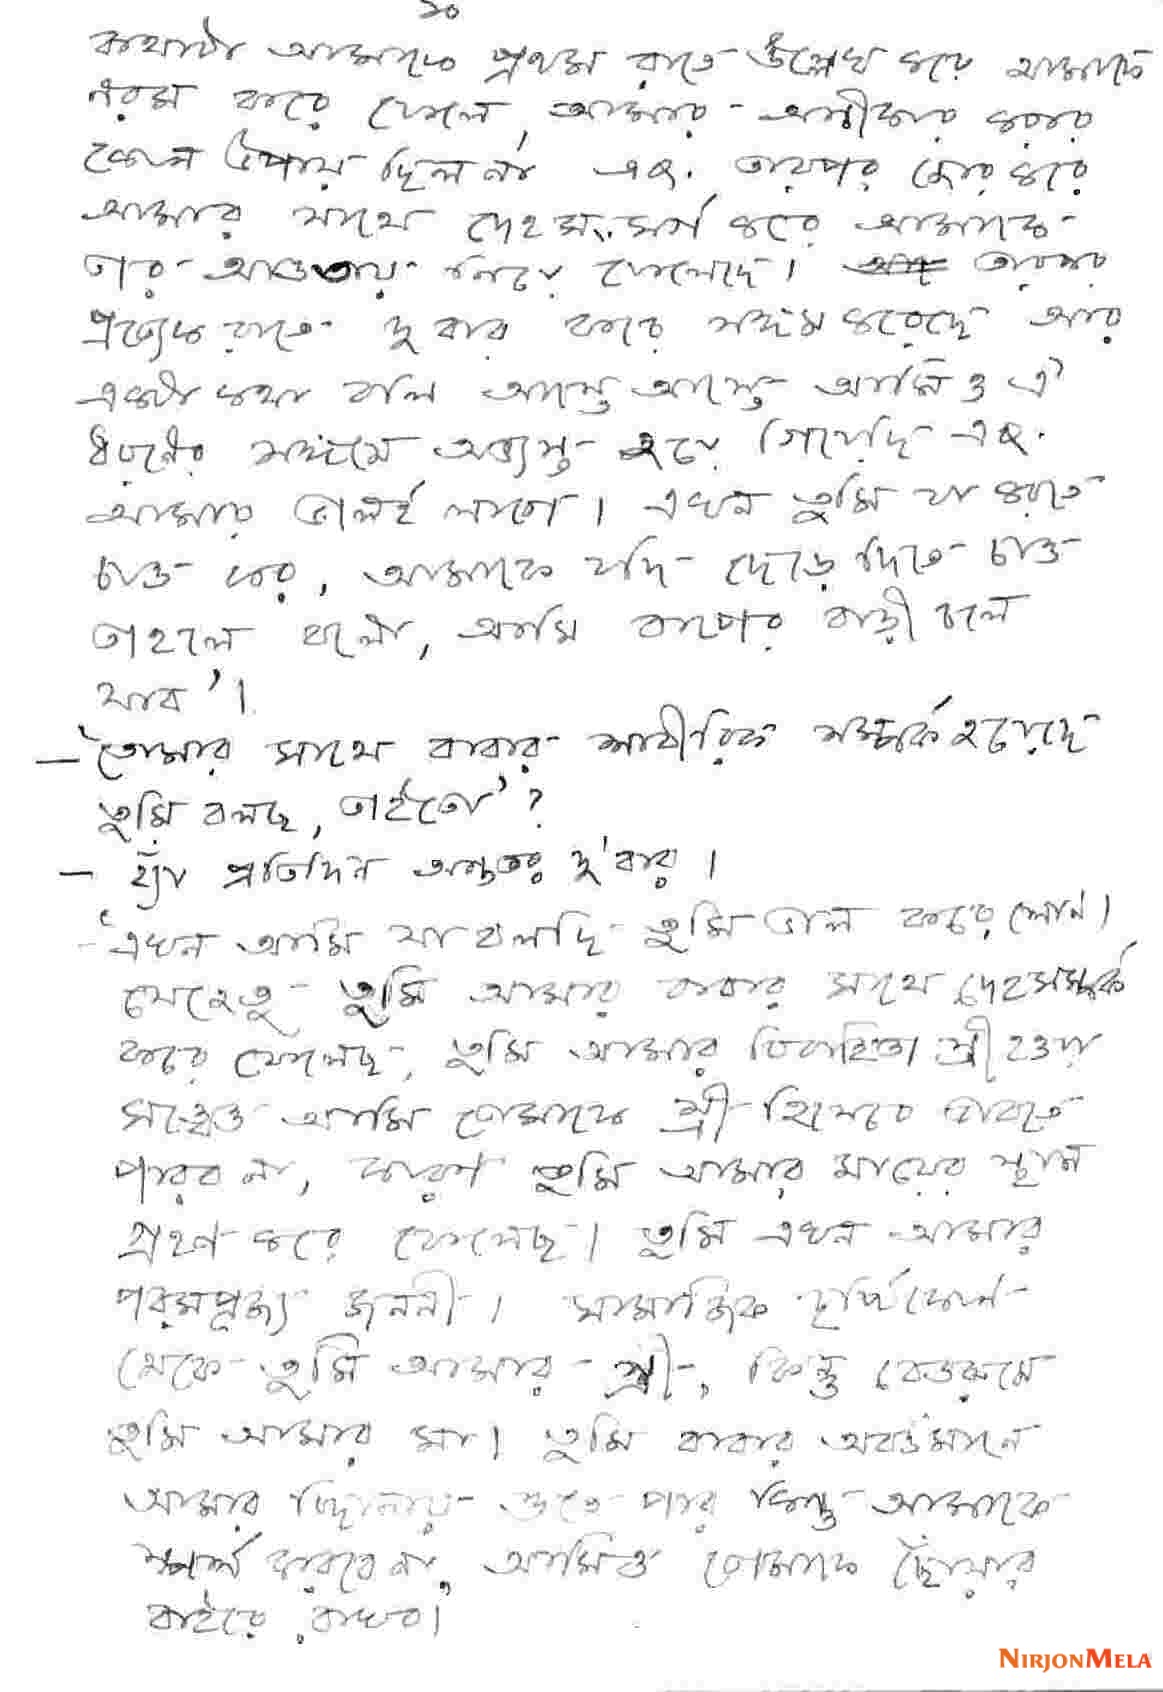 ১০
কথাটা আমাকে প্রথম রাতে উল্লেখ করে আমাকে
নরম করে ফেলে, আমার অস্বীকার করার
কোন উপায় ছিল না এবং তারপর জোর করে
আমার সাথে দেহসংসর্গ করে আমাকে
তার আওতায় নিয়ে ফেলেছে। তারপর
প্রত্যেক রাতে দু বার করে সঙ্গম করেছে আর
একটা কথা বলি আস্তে আস্তে আমিও ঐ
ধরনের সঙ্গমে অভ্যস্ত হয়ে গিয়েছি এবং
আমার ভালই লাগে। এখন তুমি যা করতে
চাও কর, আমাকে যদি ছেড়ে দিতে চাও
তাহলে বলো, আমি বাপের বাড়ী চলে
যাব'।
— 'তোমার সাথে বাবার শারীরিক সম্পর্ক হয়েছে
তুমি বলছ, তাইতো'?
— হ্যাঁ প্রতিদিন অন্ততঃ দু'বার।
- 'এখন আমি যা বলছি তুমি ভাল করে শোন।
যেহেতু তুমি আমার বাবার সাথে দেহসম্পর্ক
করে ফেলেছ, তুমি আমার বিবাহিতা স্ত্রী হওয়া
সত্ত্বেও আমি তোমাকে স্ত্রী হিসেবে ভাবতে
পারব না, কারণ তুমি আমার মায়ের স্থান
গ্রহণ করে ফেলেছ। তুমি এখন আমার
পরমপূজ্য জননী। সামাজিক দৃষ্টিকোণ
থেকে তুমি আমার স্ত্রী, কিন্তু বেডরুমে
তুমি আমার মা। তুমি বাবার অবর্তমানে
আমার বিছানায় শুতে পার কিন্তু আমাকে
স্পর্শ করবে না, আমিও তোমাকে ছোঁয়ার
বাইরে রাখব।
NIRJONMELA